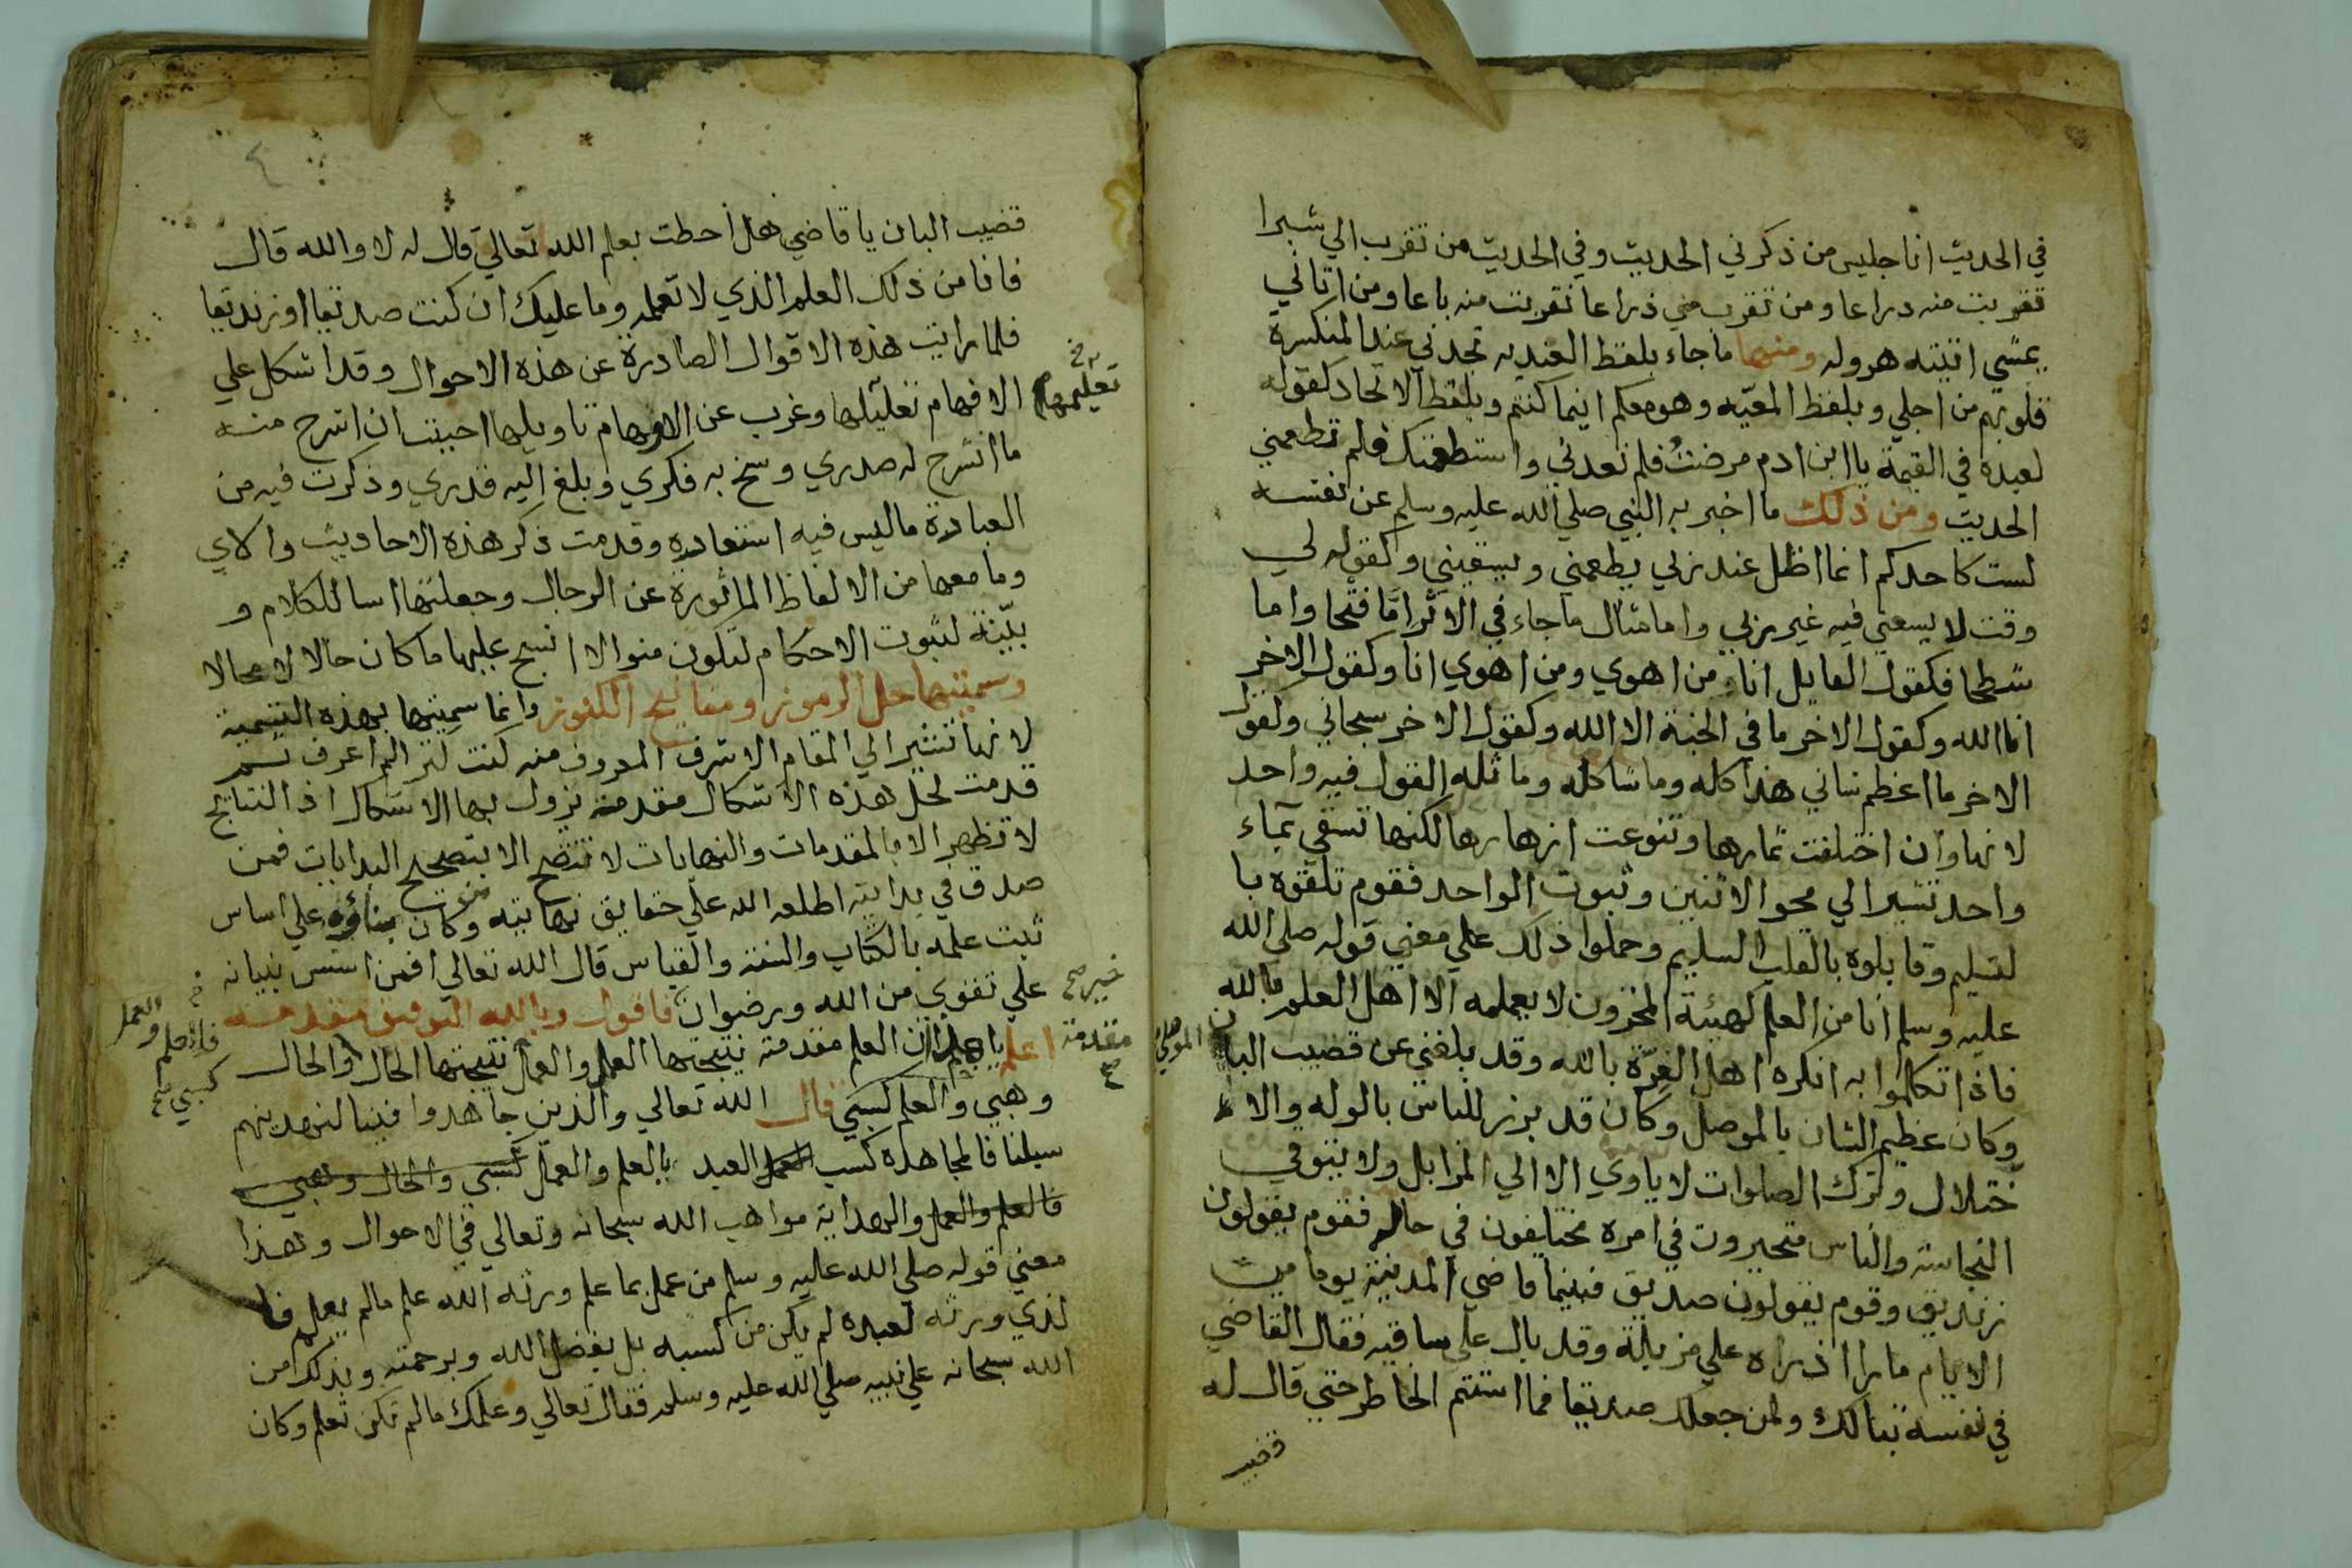 في الحديث انا جليس من ذكرني الحديث وفي الحديث من تقرب الي شبرا
تقربت منه دراعا ومن تقرب مني ذراعا تقربت منه باعا ومن اتاني
يمشي اتيته هروله ومنها ما جاء بلفظ العنديه تجدني عند المنكسرة
قلوبهم من اجلي وبلفظ المعيّه وهو معكم اينما كنتم وبلفظ الاتحاد كقوله
لعبده في القيمة يا ابن ادم مرضتُ فلم تعدني واستطعمتك فلم تطعمني
الحديث ومن ذلك ما اخبر به النبي صلي الله عليه وسلم عن نفسه
لست كاحدكم انما اظل عند ربي يطعمني ويسقيني وكقوله لي
وقت لا يسعني فيه غير ربي واما مثال ما جاء في الاثر امّا فتحا واما
شطحا فكقول القايل انا من اهوي ومن اهوي انا وكقول الاخر
انا الله وكقول الاخر ما في الجنة الا الله وكقول الاخر سبحاني وكقول
الاخر ما اعظم شاني هذا كله وما شاكله وما ثله القول فيه واحد
لانها وان اختلفت ثمارها وتنوعت ازهارها لكنها تسقي بماء
واحد تشير الي محو الاثنين وثبوت الواحد فقوم تلقوه با
لتسليم وقابلوه بالقلب السليم وحملوا ذلك علي معني قوله صلي الله
عليه وسلم ان من العلم كهيئة المخزون لا يعلمه الا اهل العلم بالله
فاذا تكلموا به انكره اهل الغِرّة بالله وقد بلغني عن قضيب البان الموصلي
وكان عظيم الشان بالموصل وكان قد برز للناس بالوله والا
ختلال وترك الصلوات لا ياوي الا الي المزابل ولا يتوقي
النجاسة والناس متحيرون في امره مختلفون في حاله فقوم يقولون
زنديق وقوم يقولون صديق فبينما قاضي المدينة يوما من
الايام مارا اذ راه علي مزبلة وقد بال علي ساقيه فقال القاضي
في نفسه تبا لك ولمن جعلك صديقا فما استتم الخاطر حتي قال له
قضيب البان يا قاضي هل احطت بعلم الله تعالي قال له لا والله قال
فانا من ذلك العلم الذي لا تعلمه وما عليك ان كنت صديقا او زنديقا
فلما رايت هذه الاقوال الصادرة عن هذه الاحوال وقد اشكل علي
الافهام تعليلها وغرب عن الاوهام تاويلها احببت ان اشرح منه
تعليمها
ما انشرح له صدري وسنح به فكري وبلغ اليه قدري وذكرت فيه من
العبادة ما ليس فيه استعاده وقدمت ذكر هذه الاحاديث والاي
وما معها من الالفاظ الماثورة عن الرجال وجعلتها اسا للكلام و
بيّنة لثبوت الاحكام لتكون منوالا انسج عليها ما كان حالا لا محالا
وسميتها حل الرموز ومفاتيح الكنوز وانما سميتها بهذه التسمية
لانها تشير الي المقام الاشرف المعروف منه كنت كنزا لم اعرف ثم
قدمت لحل هذه الاشكال مقدمة يزول بها الاشكال اذ النتايج
لا تظهر الا بالمقدمات والنهايات لا تتضح الا بتصحيح البدايات فمن
صدق في بدايته اطلعه الله علي حقايق نهايته وكان بناؤه علي اساس
ثبت علمه بالكتاب والسنة والقياس قال الله تعالي افمن اسس بنيانه
علي تقوي من الله ورضوان فاقول وبالله التوفيق مقدمه
خير صح
اعلم ان العلم مقدمة نتيجتها العمل والعمل نتيجتها الحال والحال
مقدمة
وهبي والعلم كسبي قال الله تعالي والذين جاهدوا فينا لنهدينهم
فالعلم والعمل
كسبي صح
سبلنا فالمجاهدة كسب العبد بالعلم والعمل كسبي والحال وهبي
فالعلم والعمل والهداية مواهب الله سبحانه وتعالي في الاحوال وهذا
معني قوله صلي الله عليه وسلم من عمل بما علم ورثه الله علم مالم يعلم فا
لذي ورثه لعبده لم يكن من كسبه بل بفضل الله وبرحمته وبذلك امن
الله سبحانه علي نبيه صلي الله عليه وسلم فقال تعالي وعلمك مالم تكن تعلم وكان